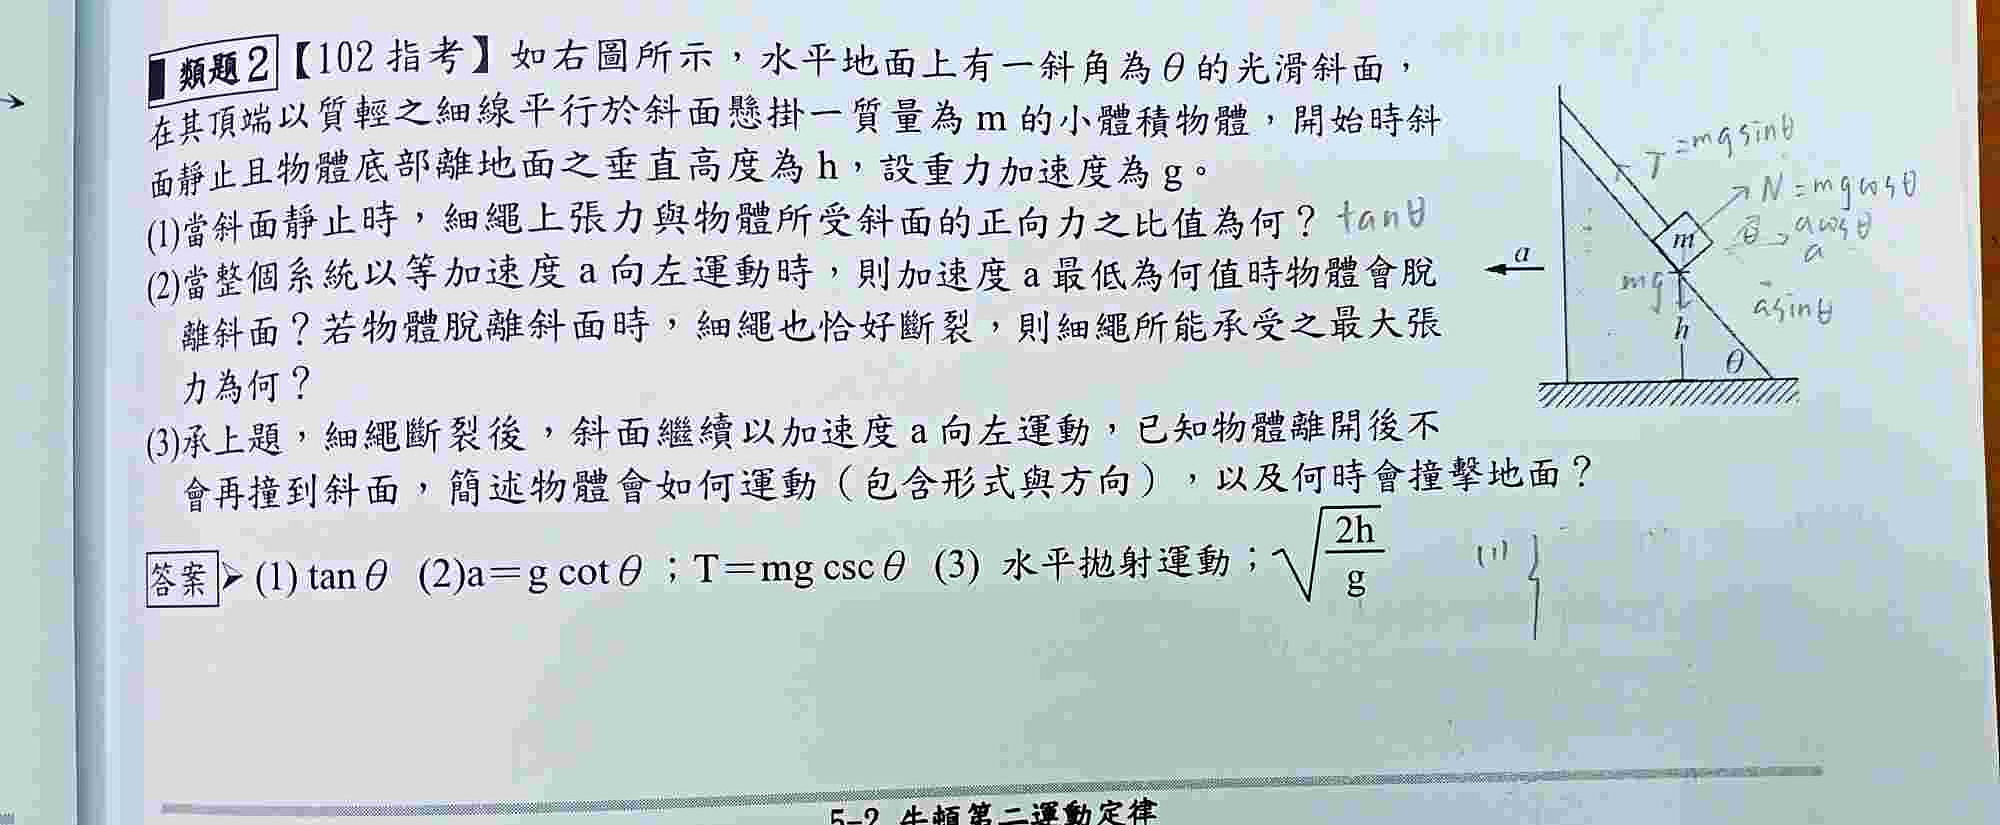 類題2【102 指考】如右圖所示，水平地面上有一斜角為θ的光滑斜面，
在其頂端以質輕之細線平行於斜面懸掛一質量為 m 的小體積物體，開始時斜
面靜止且物體底部離地面之垂直高度為 h，設重力加速度為 g。
(1)當斜面靜止時，細繩上張力與物體所受斜面的正向力之比值為何？ tanθ
(2)當整個系統以等加速度 a 向左運動時，則加速度 a 最低為何值時物體會脫
離斜面？若物體脫離斜面時，細繩也恰好斷裂，則細繩所能承受之最大張
力為何？
(3)承上題，細繩斷裂後，斜面繼續以加速度 a 向左運動，已知物體離開後不
會再撞到斜面，簡述物體會如何運動（包含形式與方向），以及何時會撞擊地面？
答案 (1) tanθ (2)a＝g cotθ；T＝mg cscθ (3) 水平拋射運動；√(2h/g)
(1)
T=mgsinθ
N=mgcosθ
m
θ
acosθ
a
a
mg
asinθ
h
θ
5-2 牛頓第二運動定律